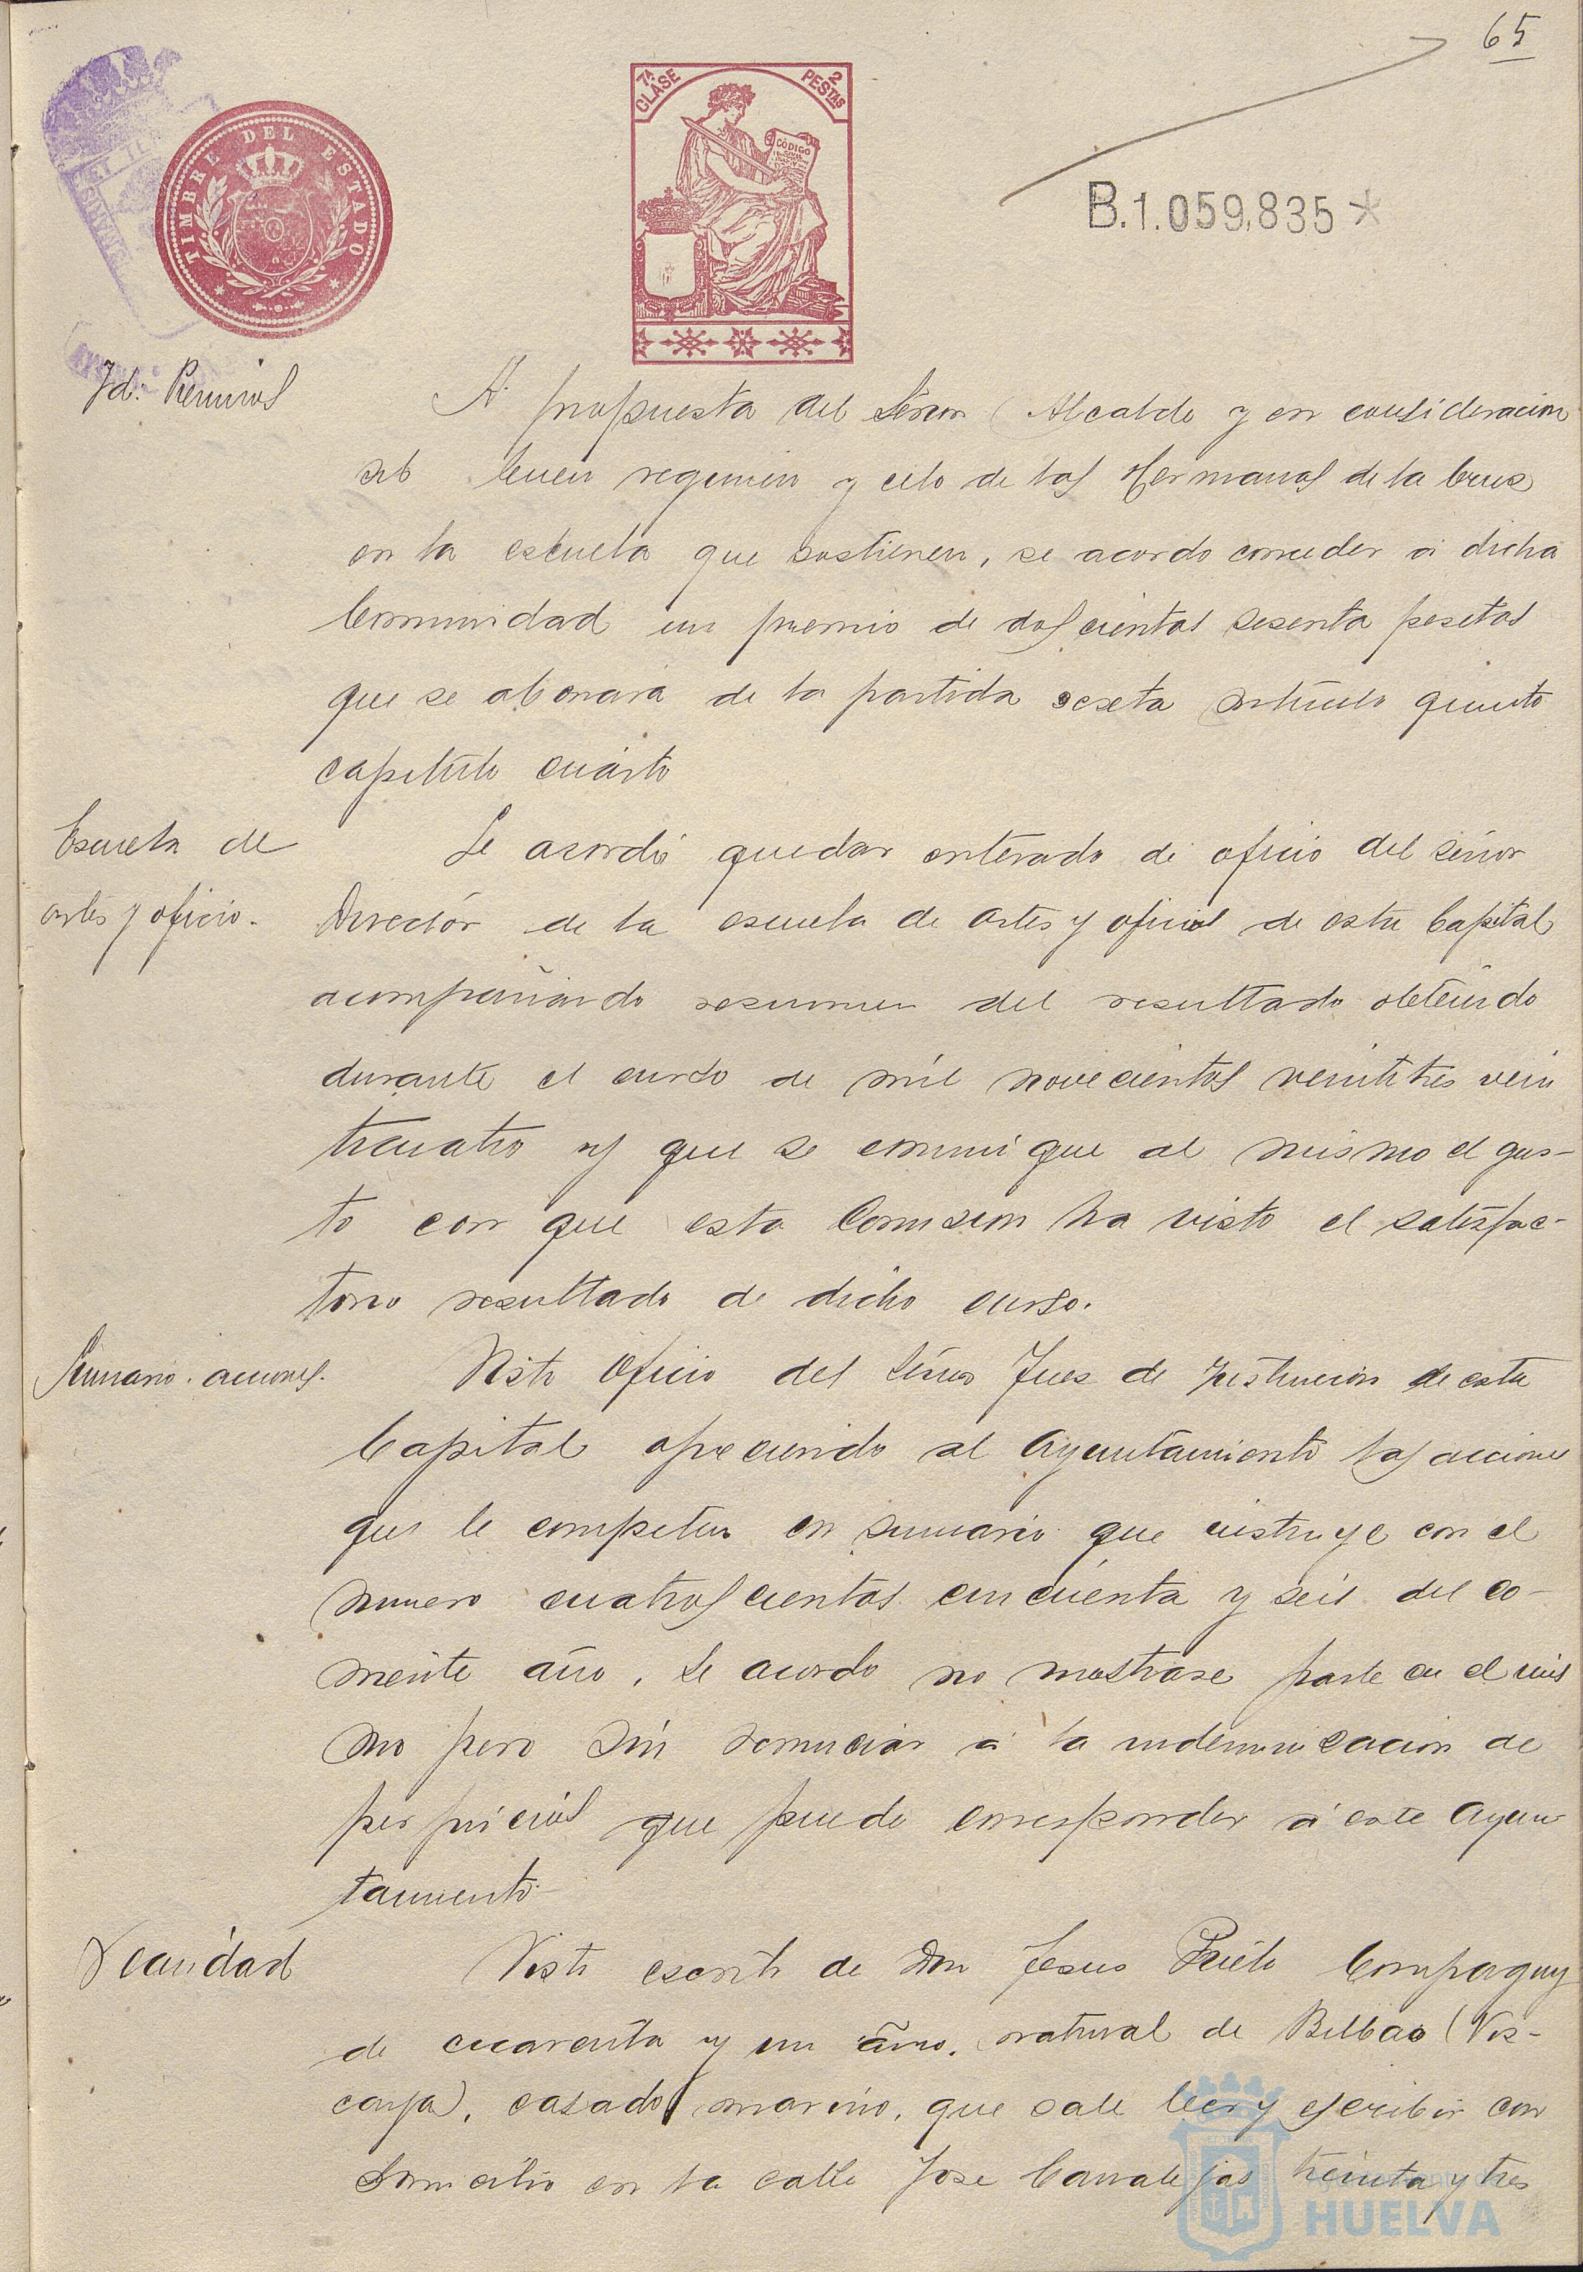 65
7ª CLASE 2 PESTAS
CÓDIGO
TIMBRE DEL ESTADO
B.1.059,835*
Id: Premios
A propuesta del Señor Alcalde y en consideracion
del buen regimen y celo de las Hermanas de la Cruz
en la escuela que sostienen, se acordo conceder á dicha
Comunidad un premio de doscientas sesenta pesetas
que se abonará de la partida sexta artículo quinto
capitulo cuarto
Escuela de
artes y oficio.
Se acordó quedar enterado de oficio del señor
Director de la escuela de artes y oficios de esta Capital
acompañando resumen del resultado obtenido
durante el curso de mil novecientos veintitres vein
ticuatro y que se comunique al mismo el gus-
to con que esta Comision ha visto el satisfac-
torio resultado de dicho curso.
Sumario. acciones.
Visto Oficio del Señor Juez de Instrucion de esta
Capital ofreciendo al Ayuntamiento las acciones
que le competen en sumario que instruye con el
numero cuatroscientos cincuenta y seis del co-
rriente año, se acordo no mostrase parte en el mis
mo pero sin renunciar á la indemnizacion de
perjuicios que puede corresponder á este Ayun
tamiento
Vecindad
Visto escrito de Don Jesus Prieto Compaguy
de cuarenta y un año, natural de Bilbao (Viz-
caya), casado, marino, que sabe leer y escribir con
domicilio en la calle Jose Canalejas treinta y tres
HUELVA